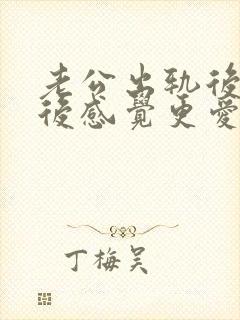 老公出轨後
後感覺更愛
丁梅吴